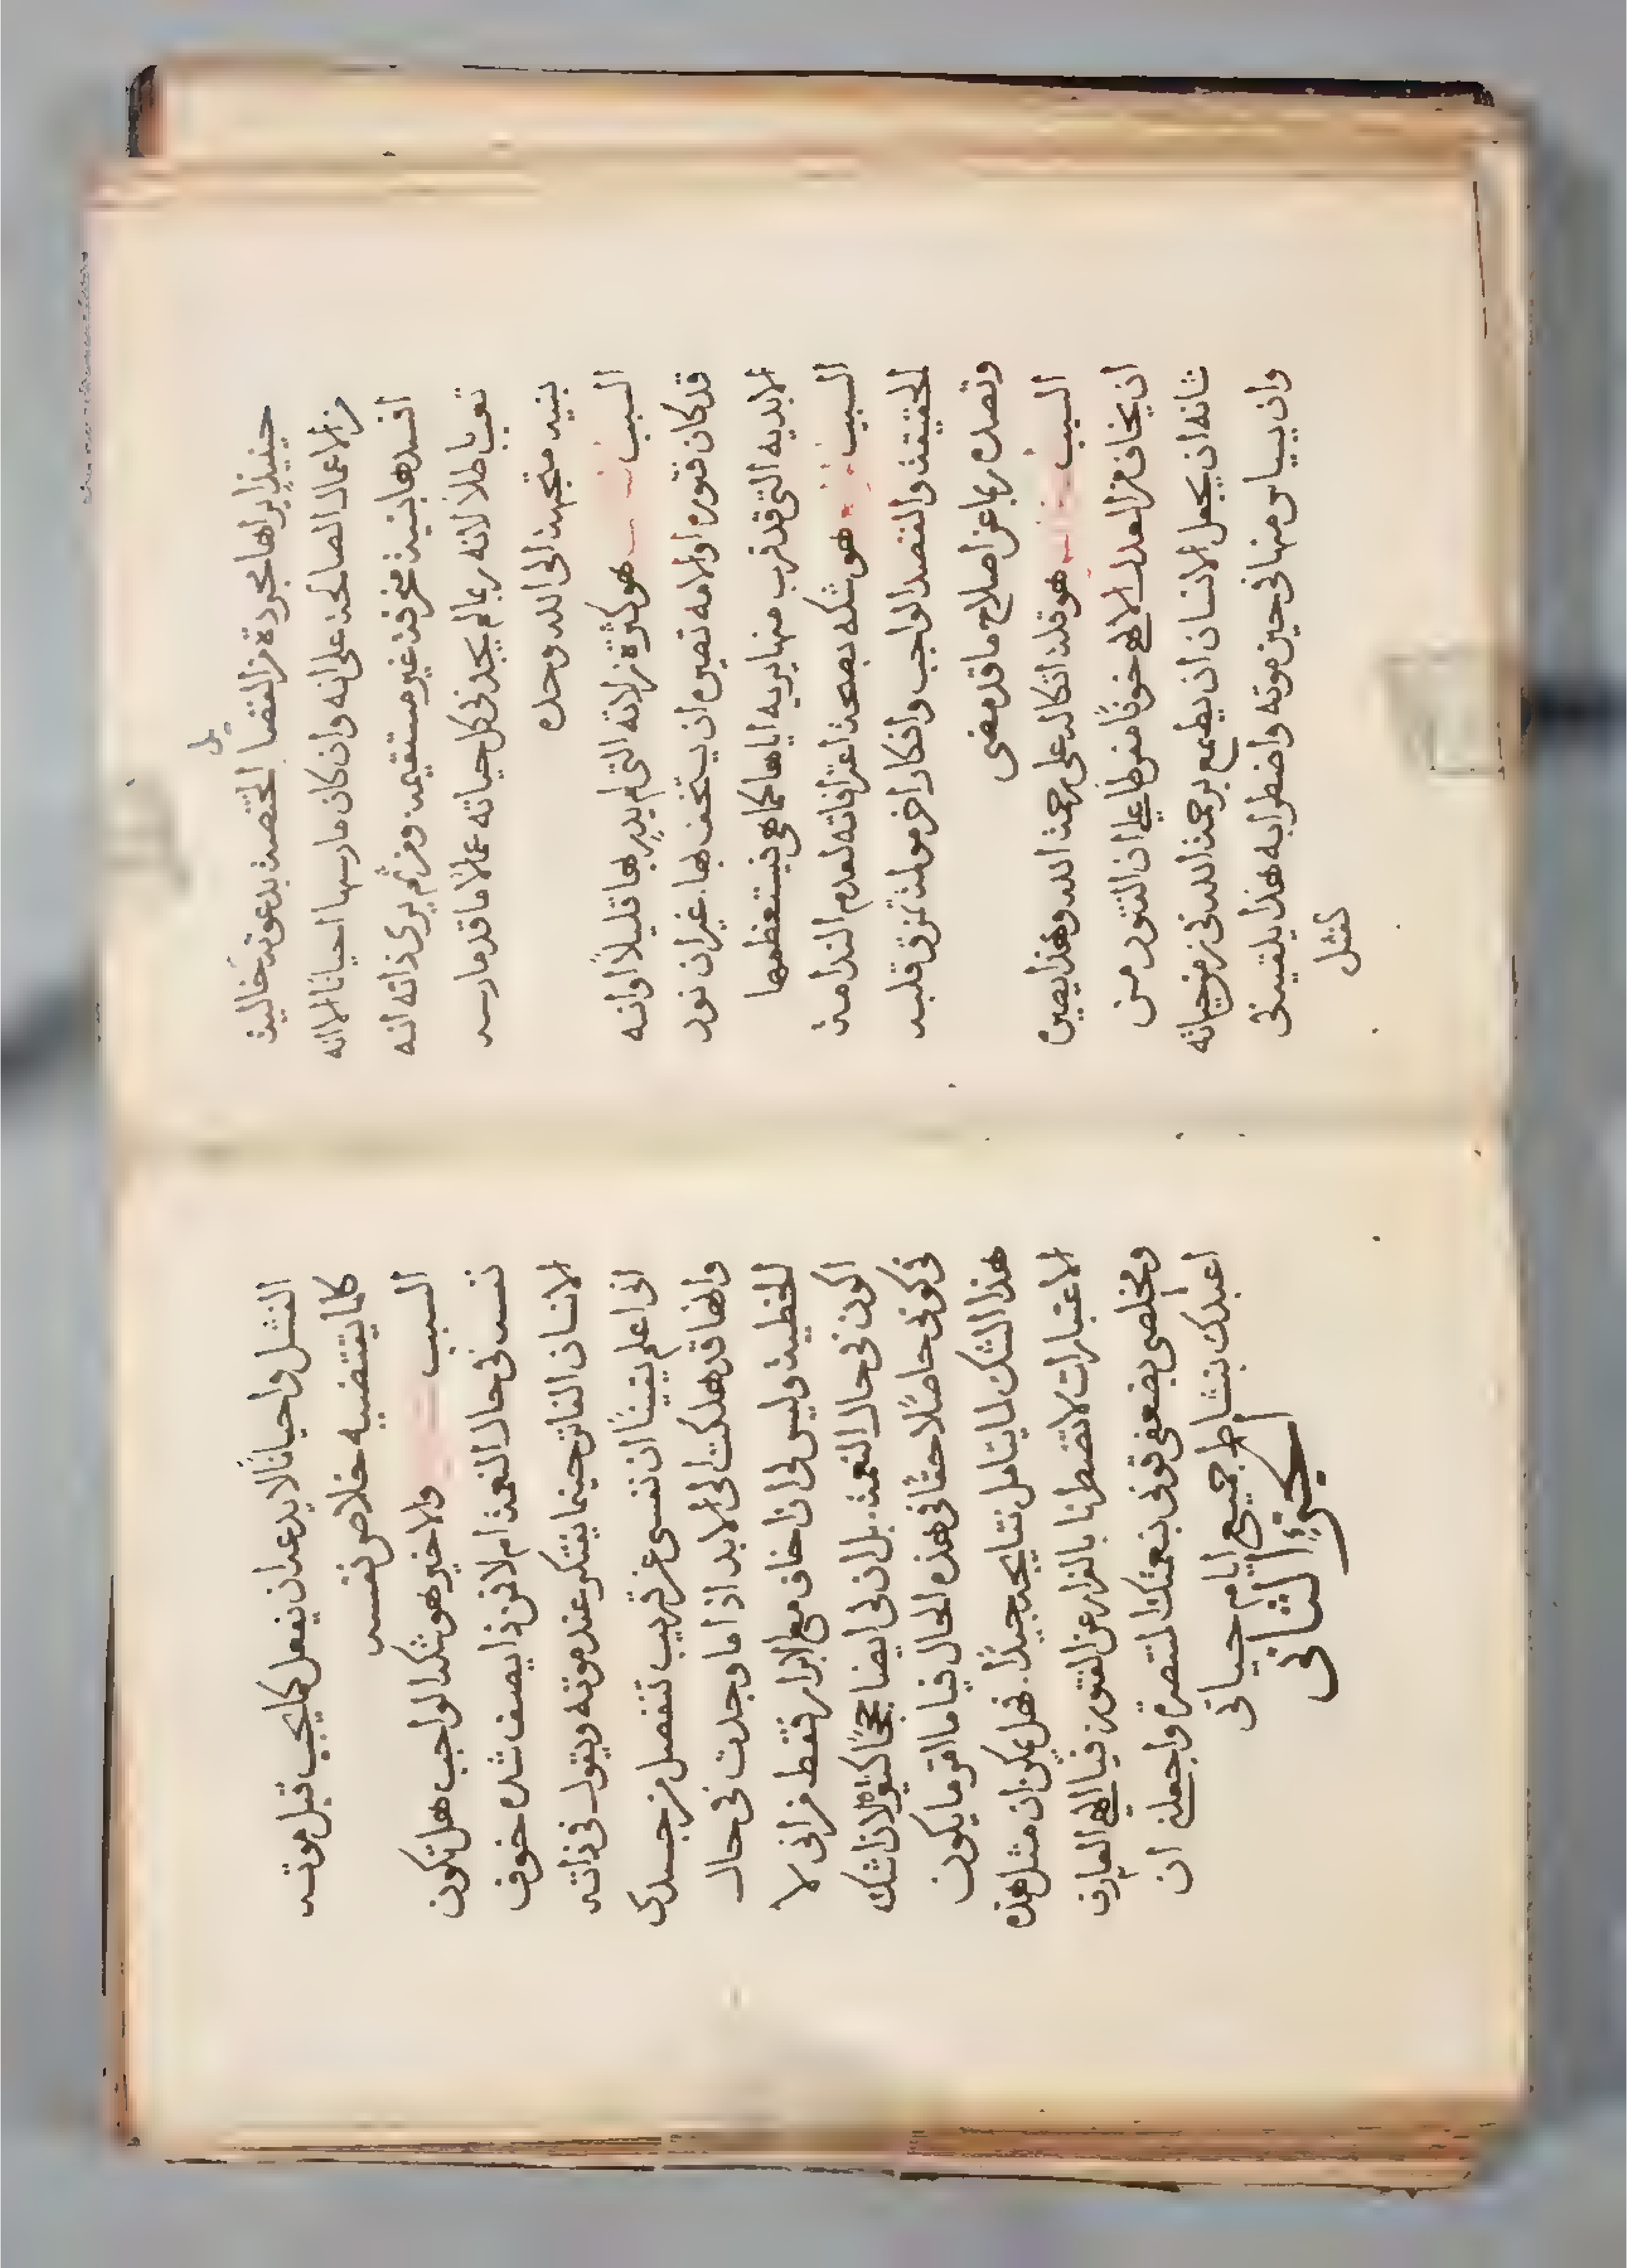 حينيذٍ يراها مجردة من القصا المختصة بدعوته خالية
من الاعمال الصالحة على انه وان كان مارسها احيانًا الا انه
افسدها بنية منحرفة غير مستقيمة ومن ثم يرى ذاته انه
تعب باطلاً لانه ربما لم يجد في كل حياته عملاً ما قد مارسه
بنية متجهة الى الله وحده
السبب هو كثرة زلاته التي لم يدرِ بها قليلاً او انه
قد كان فتوره اولامه تصيره ان يستخف بها. غير ان نور
الابديه التي قد قرب منها يريه اياها كما هي فيستعظمها
السبب هو شكه بصحة اعترافاته لعدم الندامة
الحقيقة والقصد الواجب وانكار اخر مولمة تمزق قلبه
وتصده ربما عن اصلاح ما قد مضى
السبب هو قلة اتكاله على رحمة الله وهذا يصيره
ان يخاف من العدل الالهي خوفًا مفرطًا على ان الفتور من
شانه ان يجعل الانسان ان يطمع برحمة الله في زمن حياته
وان يياس منها في حين موته واضطرابه هذا يلقيه في
الفشل
الفشل واحيانًا لا يدعه ان يفعل كما يجب قبل موته
كلما يقتضيه خلاص نفسه
السبب والاخير هو شكه الواجب هل تكون
نفسه في حال النعمة ام لا فمن ذا يصف شدة خوف
الانسان الفاتر حينما يفتكر عند موته ويقول في ذاته
اني اعلم يقينًا ان نفسي عن قريب تنفصل من جسدي
وانها قد هلكت الى الابد اذا ما وجدت في حال
الخطية وليس لي ان اخاف مع الابرار فقط من اني لا
اكون في حال النعمة. بل ان لي ايضا حججًا كثيرة لان اشك
في كوني حاصلًا حقًا في هذه الحال فيا ما امر ما يكون
هذا الشك لما يتامل نتايجه جيدًا. فهل يمكن ان مثل هذه
الاعتبارات لا تضطرنا بالفرار عن الفتور فيا الهي العارف
ومخلصي بضعفي قوني بنعمتك المقتصرة واجعلني ان
اعبدك بنشاط جميع ايام حياتي
الجزء الثاني